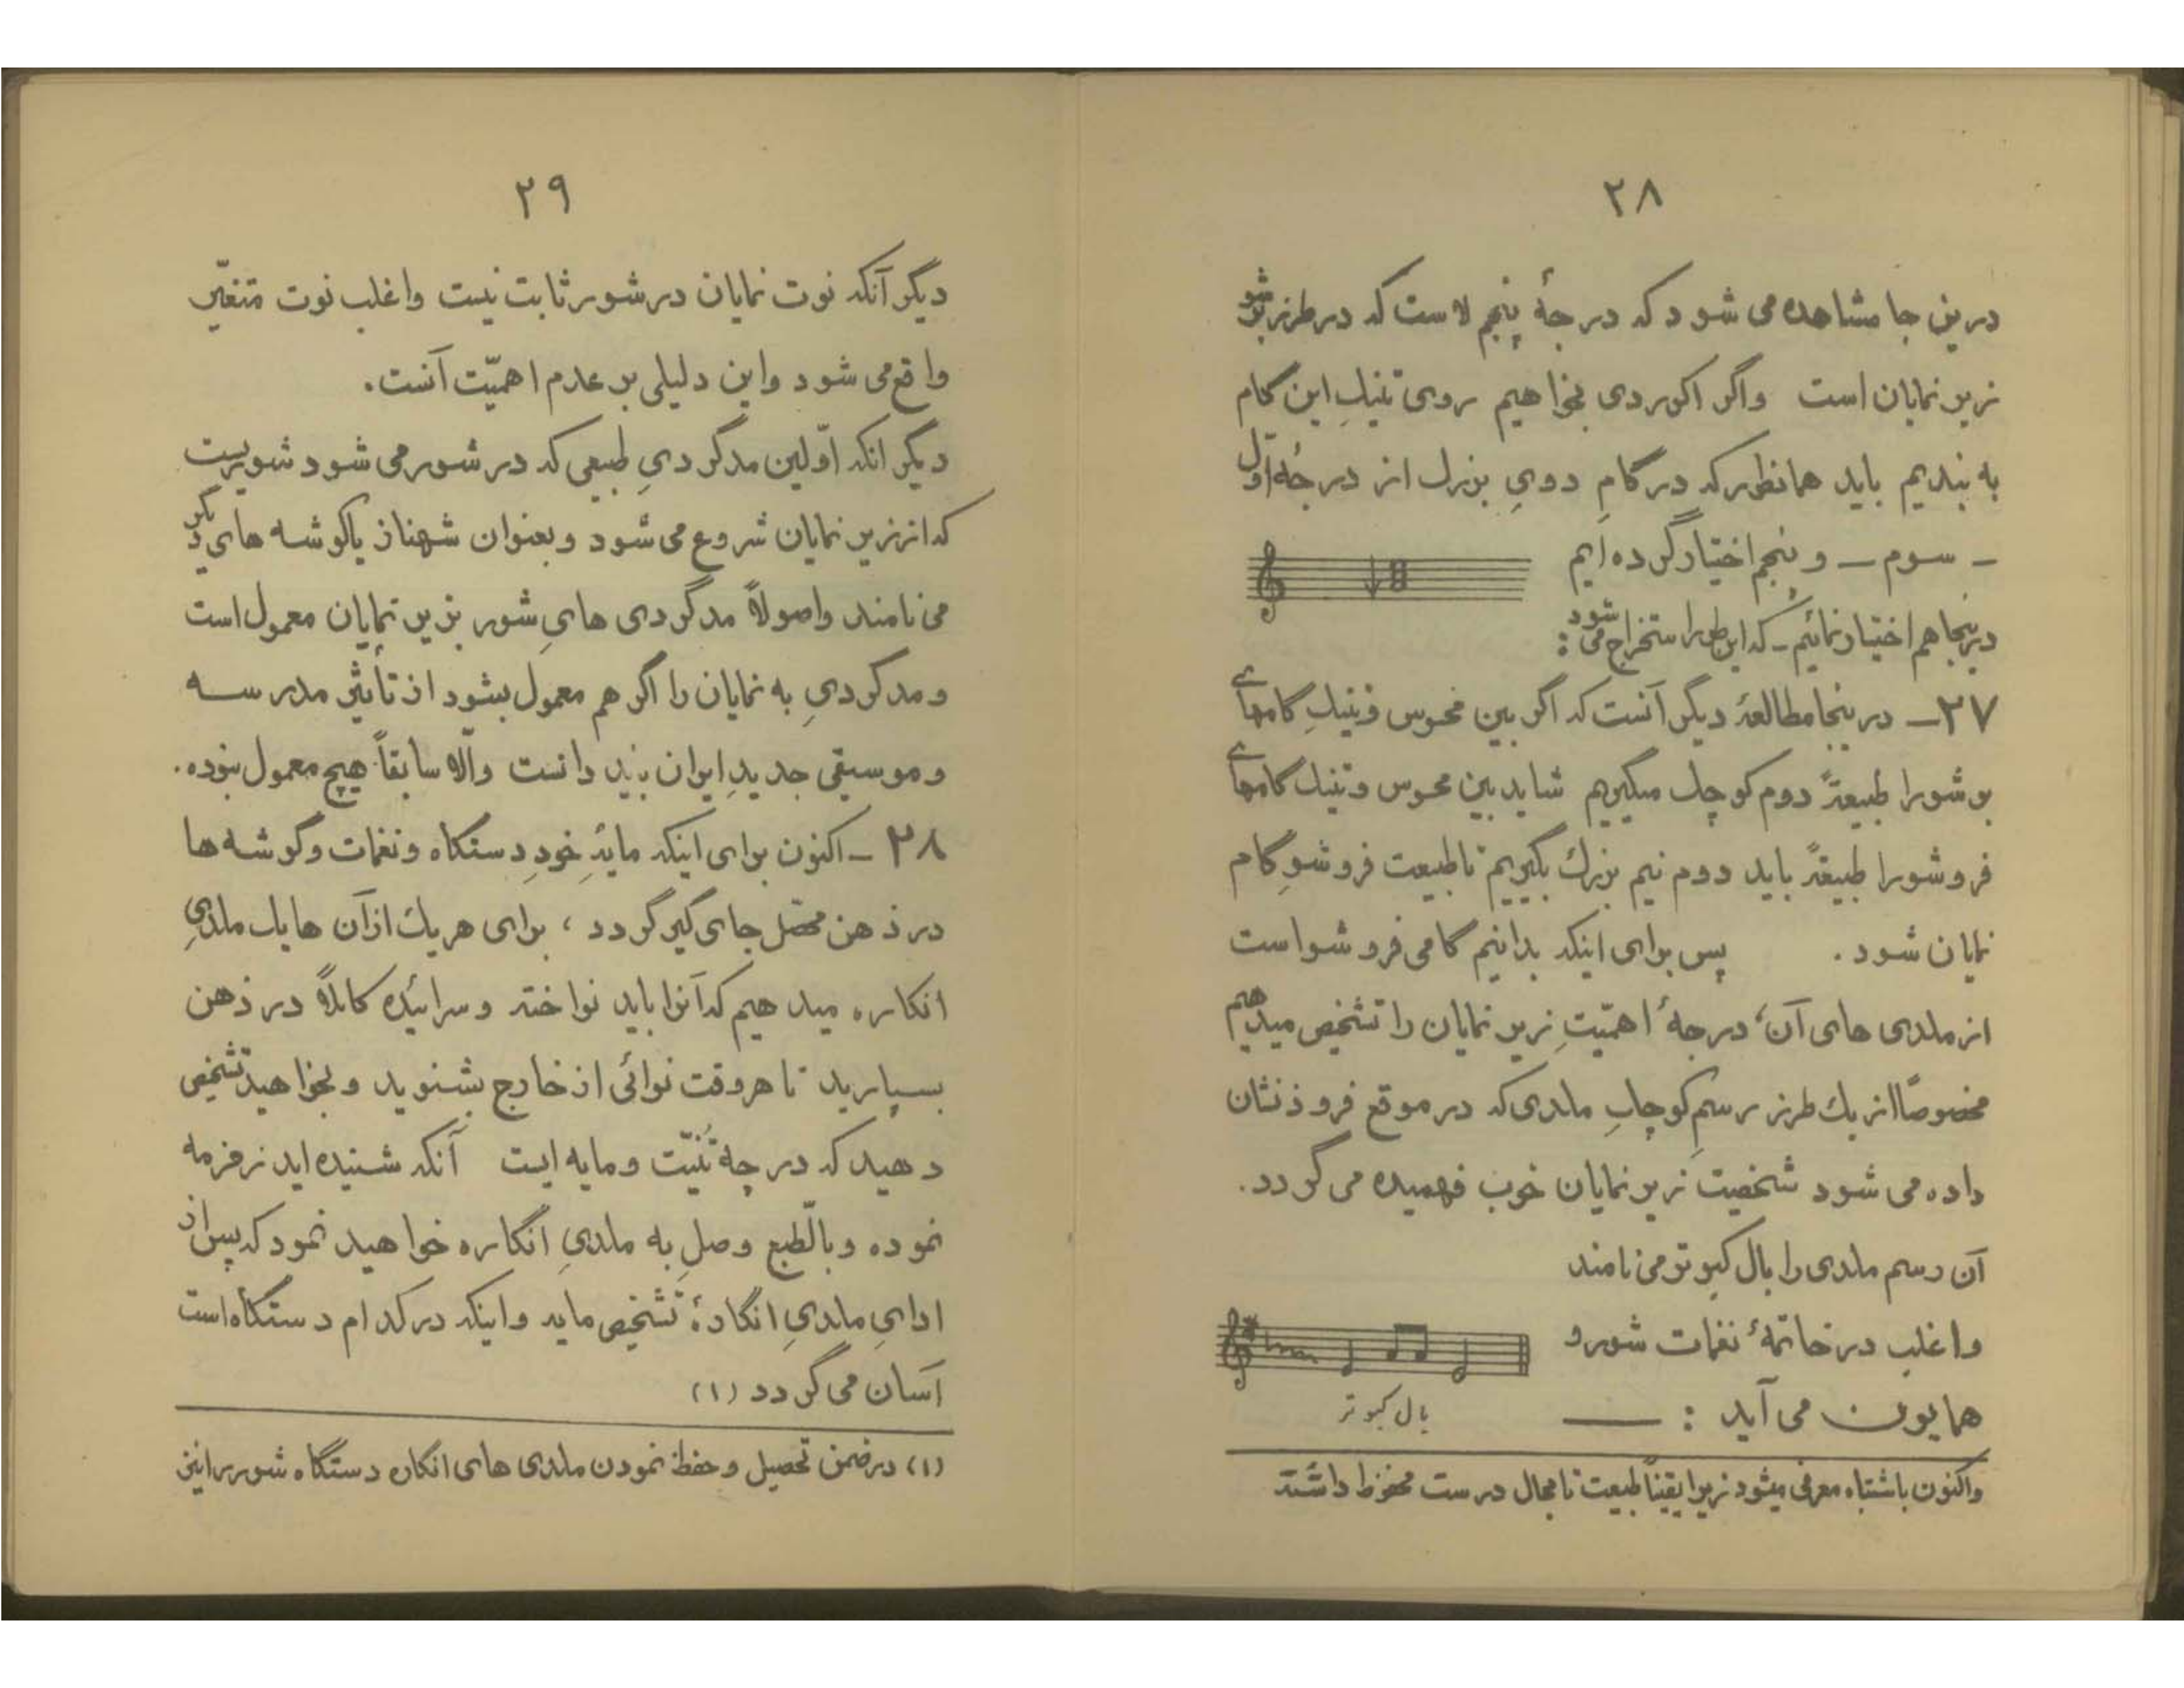 ۲۸
درین جا مشاهده می شود که درجهٔ پنجم لاست که در طرز بَرشو
زیرنمایان است واگر اکوردی بخواهیم روی تنیکِ این گام
به بندیم باید همانطور که در گامِ دویِ بزرگ از درجهٔ اوّل
ـ سوم ـ و پنجم اختیار کرده ایم
درینجا هم اختیار نمائیم ـ که این طور استخراج می شود :
۲۷ـ درینجا مطالعهٔ دیگر آنست که اگر بین محسوس و تنیکِ گامهای
برشو را طبیعةً دوم کوچک میگیریم شاید بین محسوس و تنیک گامهای
فروشو را طبیعةً باید دوم نیم بزرگ بگیریم تا طبیعت فروشوِ گام
نمایان شود . پس برای اینکه بدانیم گامی فروشو است
از ملدی های آن، درجهٔ اهمّیتِ زیرنمایان را تشخیص میدهیم
مخصوصاً از یک طرز رسمِ کوچکِ ملدی که در موقع فرود نشان
داده می شود شخصیت زیرنمایان خوب فهمیده می گردد.
آن رسم ملدی را بال کبوتر می نامند
واغلب در خاتمهٔ نغمات شور و
همایون می آید : ــــ
بال کبوتر
واکنون باشتباه معرفی میشود زیرا یقیناً طبیعت تا بحال درست محفوظ داشته
۲۹
دیگر آنکه نوت نمایان در شور ثابت نیست واغلب نوت متغیّر
واقع می شود واین دلیلی بر عدم اهمیّت آنست.
دیگر انکه اوّلین مدگردیِ طبیعی که در شور می شود شوریست
که از زیرنمایان شروع می شود و بعنوان شهناز یا گوشه های دیگر
می نامند واصولاً مدگردی هایِ شور بزیرنمایان معمول است
و مدگردیِ به نمایان را اگر هم معمول بشود از تأثیر مدرسه
و موسیقی جدیدِ ایران باید دانست والّا سابقاً هیچ معمول نبوده.
۲۸ ـ اکنون برای اینکه مایهٔ خودِ دستگاه و نغمات و گوشه ها
در ذهن محصّل جای گیر گردد ، برای هریک از آن ها یک ملدیِ
انگاره میدهیم که آنرا باید نواخته و سرائیده کاملاً در ذهن
بسپارید تا هر وقت نوائی از خارج بشنوید و بخواهید تشخیص
دهید که در چه تنیّت و مایه ایست آنکه شنیده اید زمزمه
نموده و بالطّبع وصلِ به ملدیِ انگاره خواهید نمود که پس از
ادایِ ملدیِ انگارهٔ تشخیص مایه واینکه در کدام دستگاه است
آسان می گردد (۱)
(۱) در ضمن تحصیل و حفظ نمودن ملدی های انگاره دستگاه شور را نیز